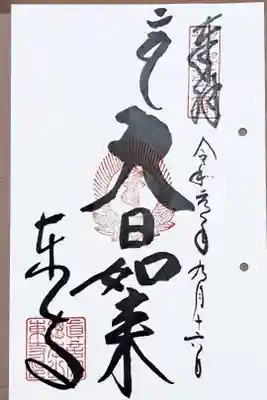 奉拝
令和元年九月十六日
大日如来
東寺